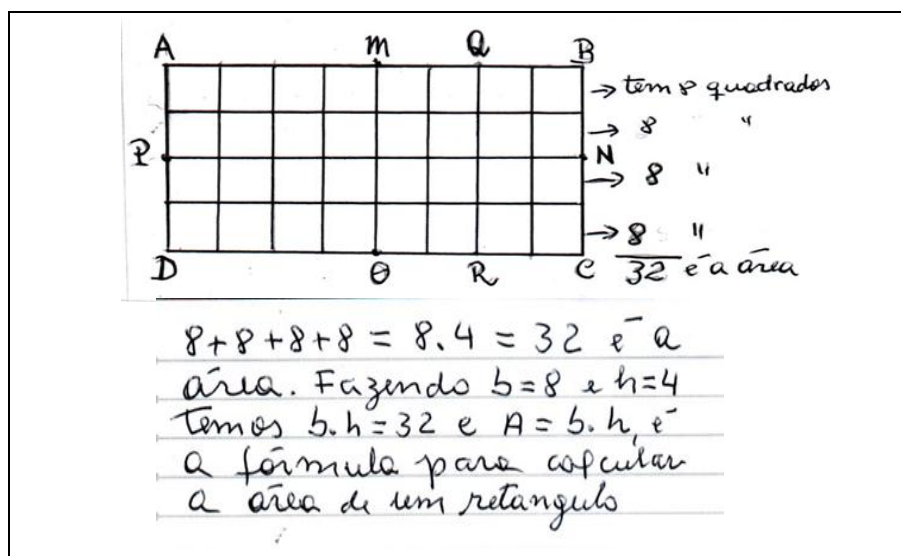 A M Q B
→ tem 8 quadrados
→ 8 "
P N
→ 8 "
→ 8 "
D O R C
32 é a área
8+8+8+8 = 8.4 = 32 é a
área. Fazendo b=8 e h=4
temos b.h=32 e A=b.h, é
a fórmula para calcular
a área de um retangulo